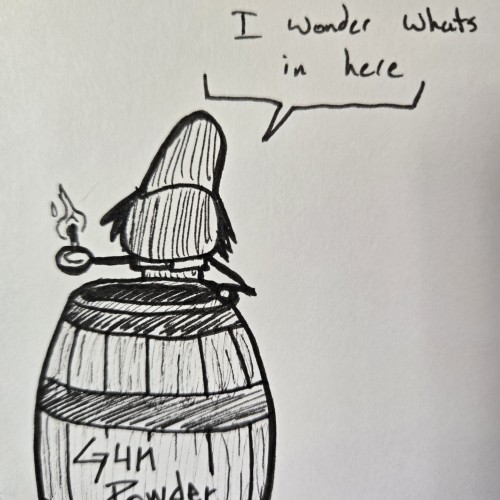 I wonder whats
in here
Gun
Powder